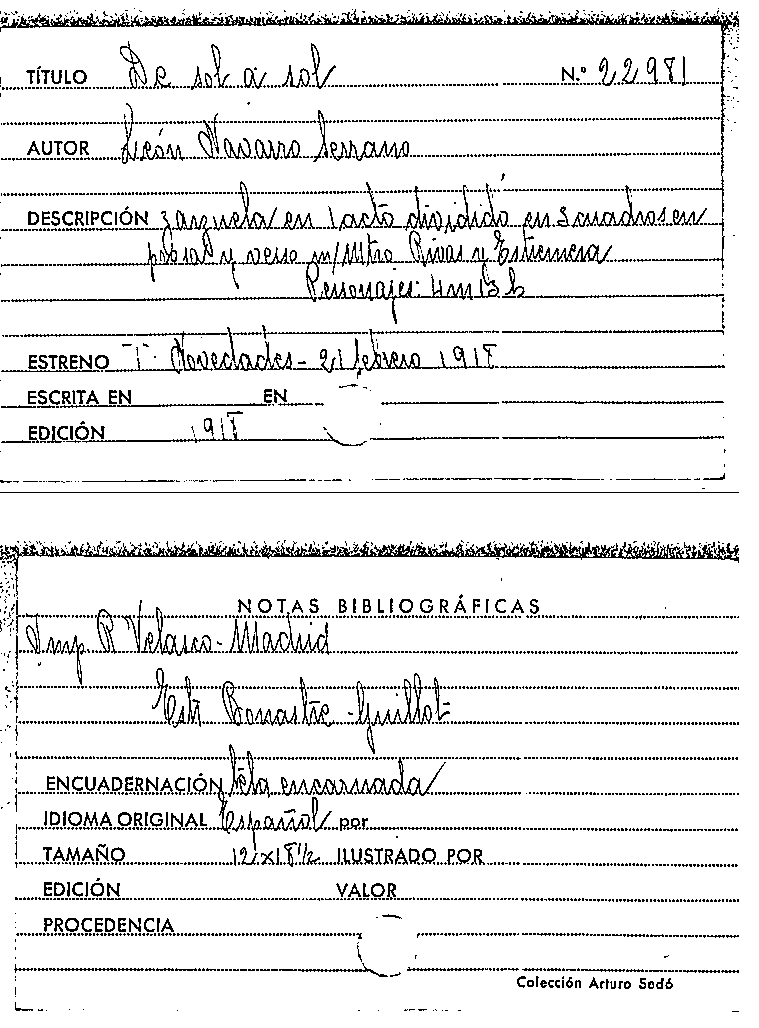 TÍTULO De sol a sol N.º 22981
AUTOR León Navarro Serrano
DESCRIPCIÓN Zarzuela en 1 acto dividido en 3 cuadros en
prosa y verso m/ Mtro Rivas y Estremera
Personajes: 4 m 13 h
ESTRENO T. Novedades - 21 febrero 1918
ESCRITA EN EN
EDICIÓN 1918
NOTAS BIBLIOGRÁFICAS
Imp R Velasco - Madrid
Estr Bonastre - Guillot -
ENCUADERNACIÓN tela encarnada
IDIOMA ORIGINAL Español por
TAMAÑO 12 x 18 1/2 ILUSTRADO POR
EDICIÓN VALOR
PROCEDENCIA
Colección Arturo Sedó